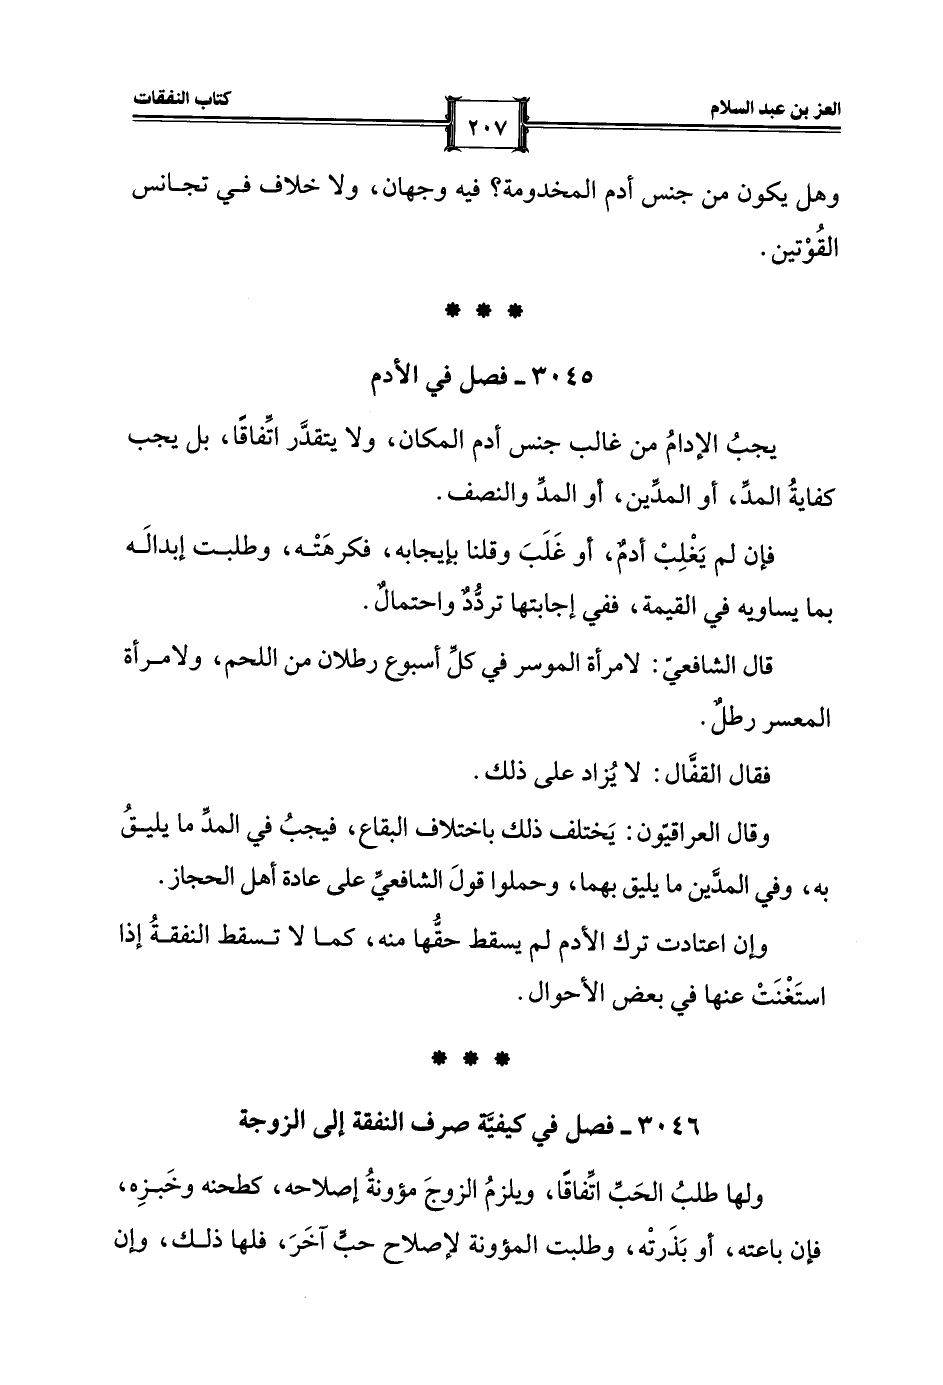 العز بن عبد السلام
٢٠٧
كتاب النفقات
وهل يكون من جنس أدم المخدومة؟ فيه وجهان، ولا خلاف في تجانس
القُوْتين.
* * *
٣٠٤٥ ـ فصل في الأدم
يجبُ الإدامُ من غالب جنس أدم المكان، ولا يتقدَّر اتِّفاقًا، بل يجب
كفايةُ المدِّ، أو المدِّين، أو المدِّ والنصف.
فإن لم يَغْلِبْ أدمٌ، أو غَلَبَ وقلنا بإيجابه، فكرهَتْه، وطلبت إبدالَه
بما يساويه في القيمة، ففي إجابتها تردُّدٌ واحتمالٌ.
قال الشافعيّ: لامرأة الموسر في كلِّ أسبوع رطلان من اللحم، ولامرأة
المعسر رطلٌ.
فقال القفَّال: لا يُزاد على ذلك.
وقال العراقيّون: يَختلف ذلك باختلاف البقاع، فيجبُ في المدِّ ما يليقُ
به، وفي المدَّين ما يليق بهما، وحملوا قولَ الشافعيِّ على عادة أهل الحجاز.
وإن اعتادت ترك الأدم لم يسقط حقُّها منه، كما لا تسقط النفقةُ إذا
استَغْنَتْ عنها في بعض الأحوال.
* * *
٣٠٤٦ ـ فصل في كيفيَّة صرف النفقة إلى الزوجة
ولها طلبُ الحَبِّ اتِّفاقًا، ويلزمُ الزوجَ مؤونةُ إصلاحه، كطحنه وخَبزِه،
فإن باعته، أو بَذَرتْه، وطلبت المؤونة لإصلاح حبٍّ آخَرَ، فلها ذلك، وإن